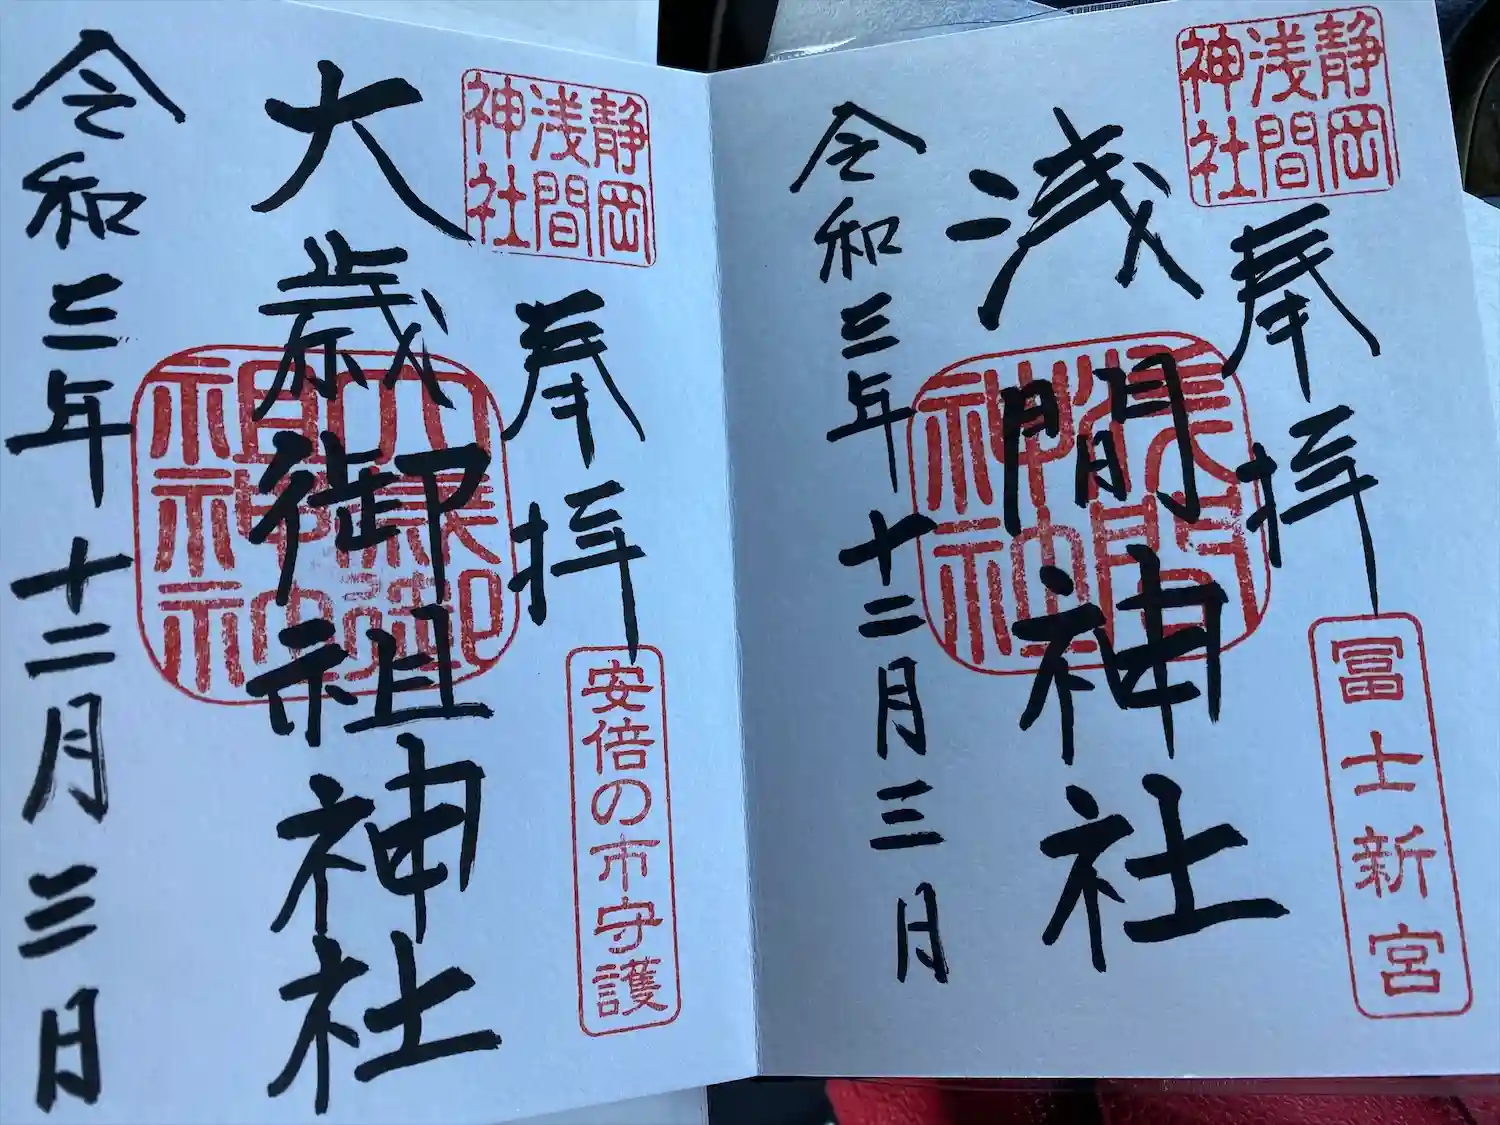 静岡
浅間
神社
奉拝
冨士新宮
浅間神社
浅間
神社
令和三年十二月三日
静岡
浅間
神社
奉拝
安倍の市守護
大歳御祖神社
令和三年十二月三日